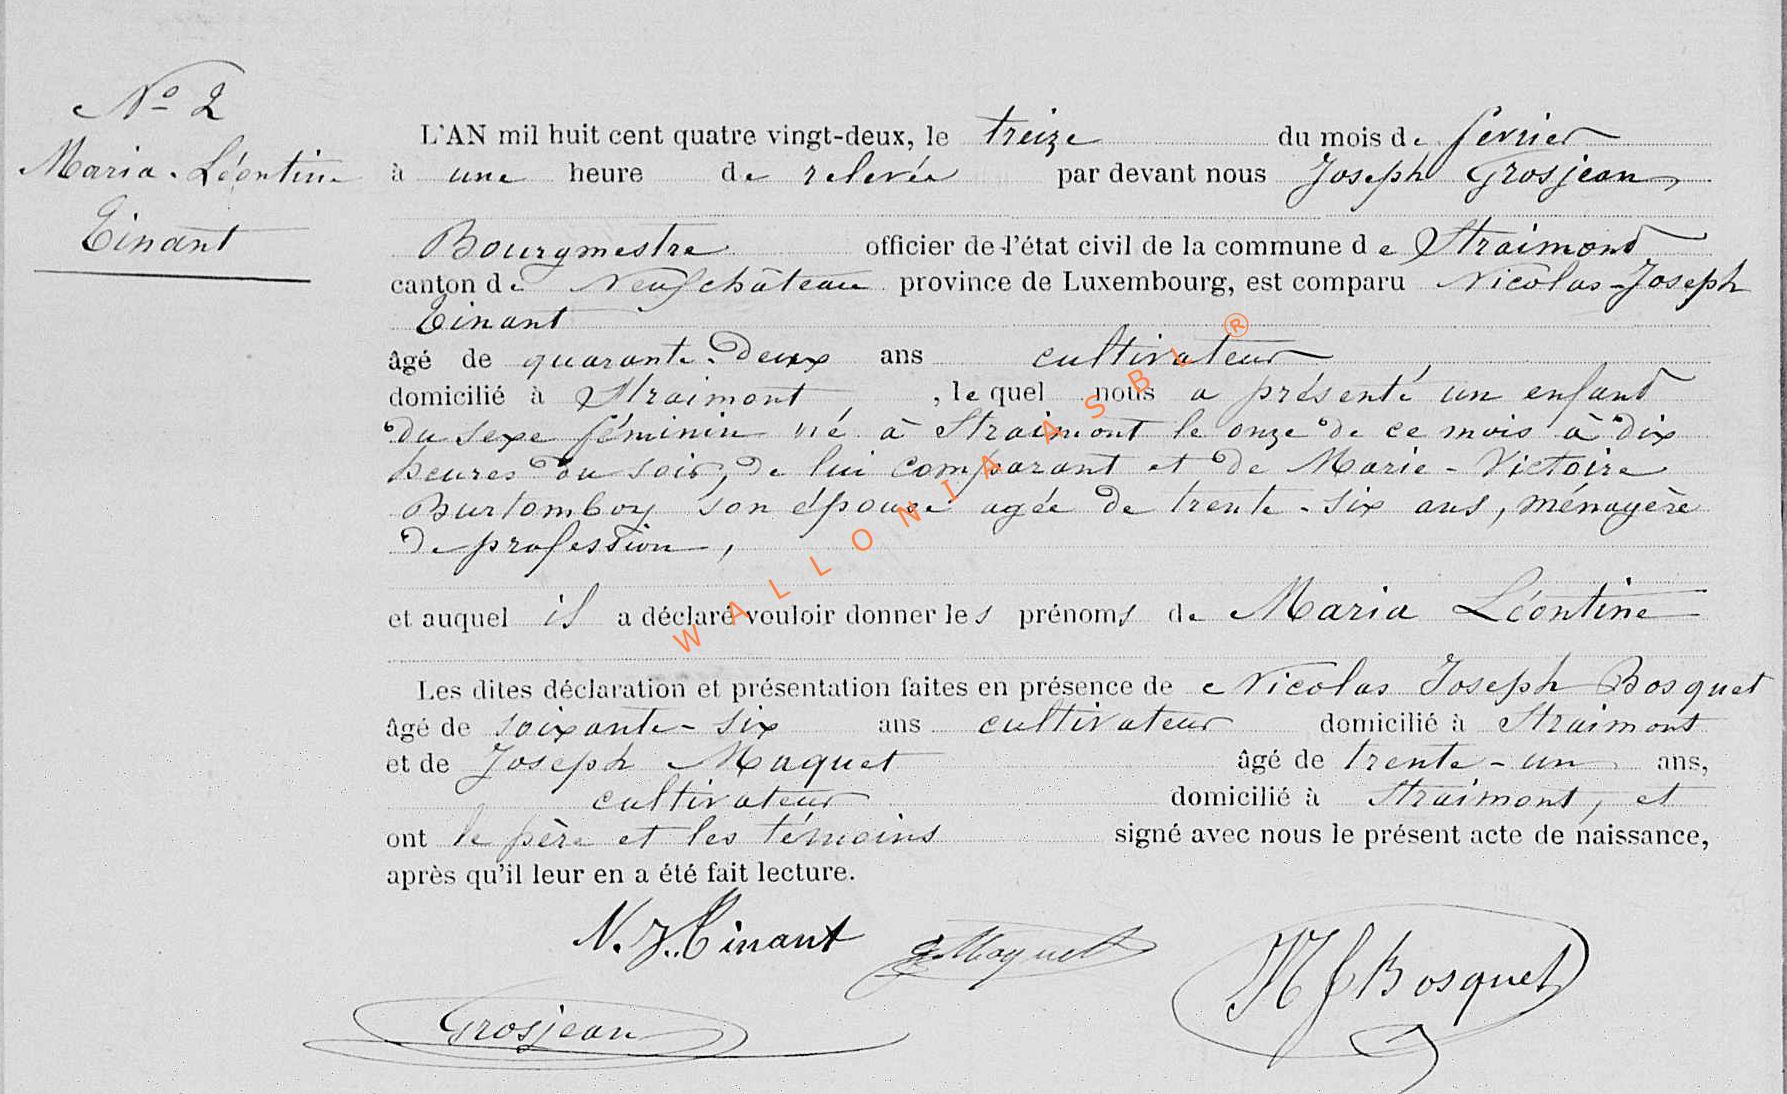 Nº 2
Maria-Léontine
Tinant
L'AN mil huit cent quatre vingt-deux, le treize du mois de fevrier
à une heure de relevée par devant nous Joseph Grosjean,
Bourgmestre officier de l'état civil de la commune de Straimont
canton de Neufchâteau province de Luxembourg, est comparu Nicolas-Joseph
Tinant
âgé de quarante-deux ans cultivateur,
domicilié à Straimont, , le quel nous a présenté un enfant
du sexe féminin né à Straimont le onze de ce mois à dix
heures du soir, de lui comparant et de Marie-Victoire
Burtomboy son épouse agée de trente-six ans, ménagère
de profession,
et auquel il a déclaré vouloir donner les prénoms de Maria Léontine
Les dites déclaration et présentation faites en présence de Nicolas Joseph Bosquet
âgé de soixante-six ans cultivateur domicilié à Straimont
et de Joseph Maquet âgé de trente-un ans,
cultivateur domicilié à Straimont, et
ont le père et les témoins signé avec nous le présent acte de naissance,
après qu'il leur en a été fait lecture.
N. J. Tinant J. Maquet NJBosquet
Grosjean
WALLONIA ASBL ®